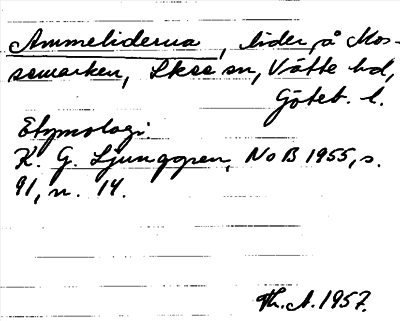 Ammeliderna, lider på Mos-
semarken, Skee sn, Vätte hd,
Göteb. l.
Etymologi.
K. G. Ljunggren, NoB 1955, s.
91, n. 14.
Th. A. 1957.